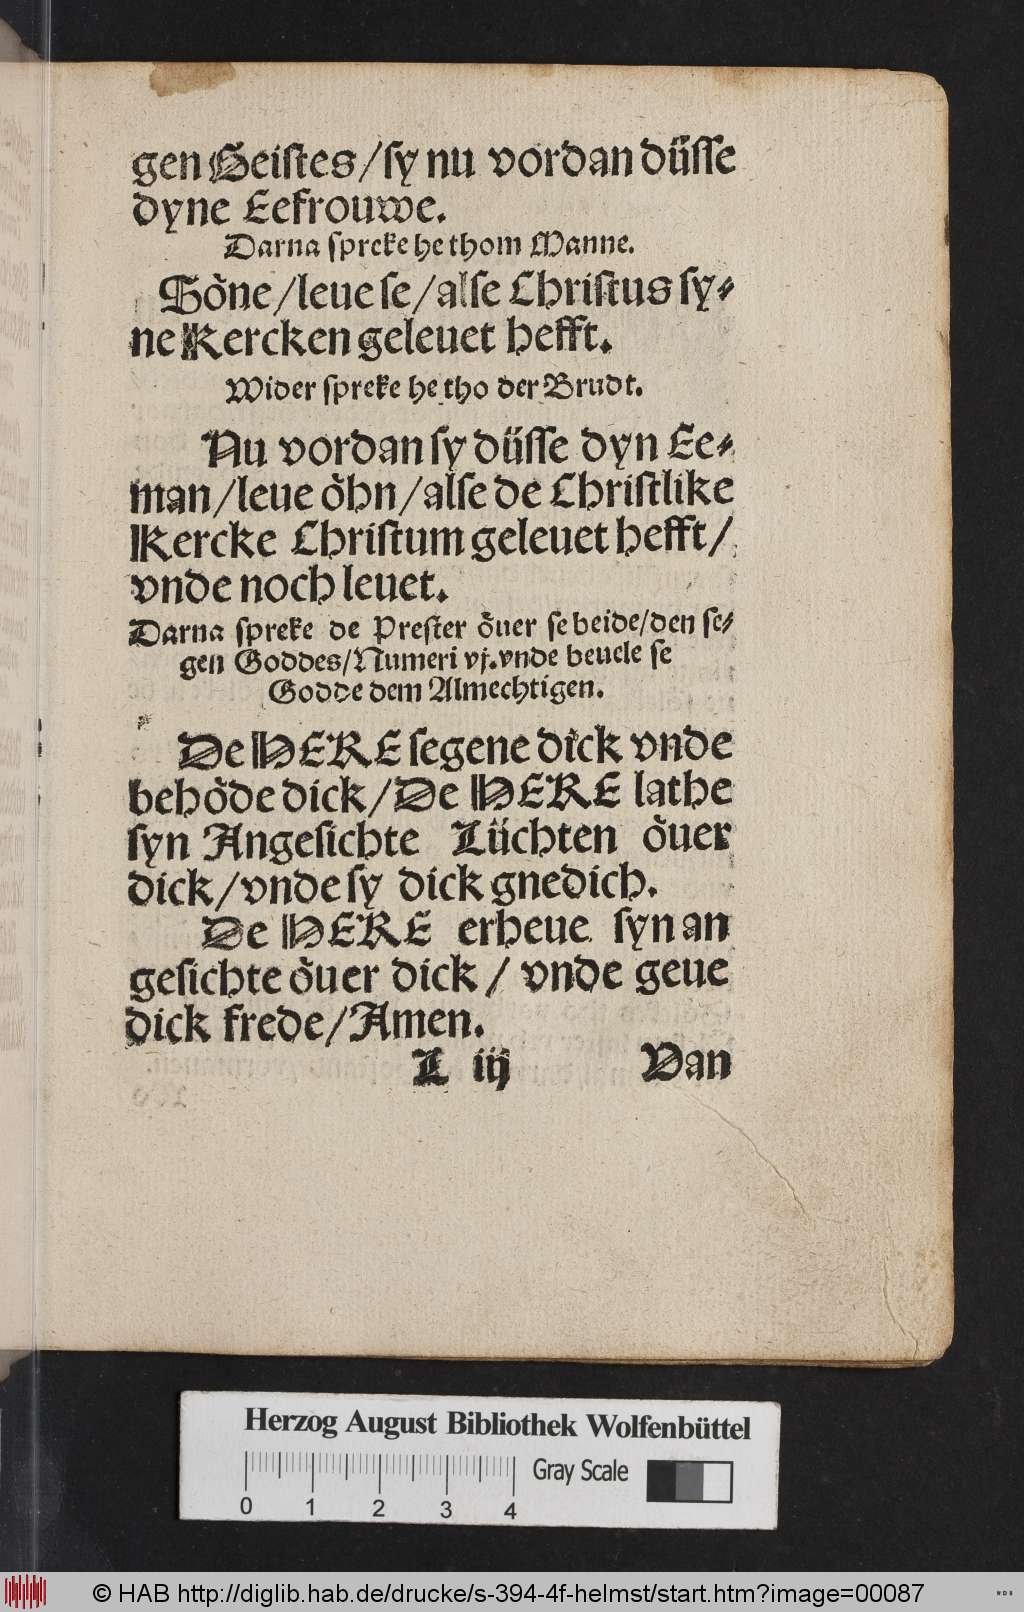 gen Geistes/sy nu vordan düsse
dyne Eefrouwe.
Darna spreke he thom Manne.
Söne/leue se/alse Christus sy-
ne Kercken geleuet hefft.
Wider spreke he tho der Brudt.
Nu vordan sy düsse dyn Ee-
man/leue öhn/alse de Christlike
Kercke Christum geleuet hefft/
vnde noch leuet.
Darna spreke de Prester öuer se beide/den se-
gen Goddes/Numeri vj. vnde beuele se
Godde dem Almechtigen.
De HERE segene dick vnde
behöde dick/De HERE lathe
syn Angesichte Lüchten öuer
dick/vnde sy dick gnedich.
De HERE erheue syn an
gesichte öuer dick/vnde geue
dick frede/Amen.
L iij Van
Herzog August Bibliothek Wolfenbüttel
Gray Scale
0 1 2 3 4
© HAB http://diglib.hab.de/drucke/s-394-4f-helmst/start.htm?image=00087